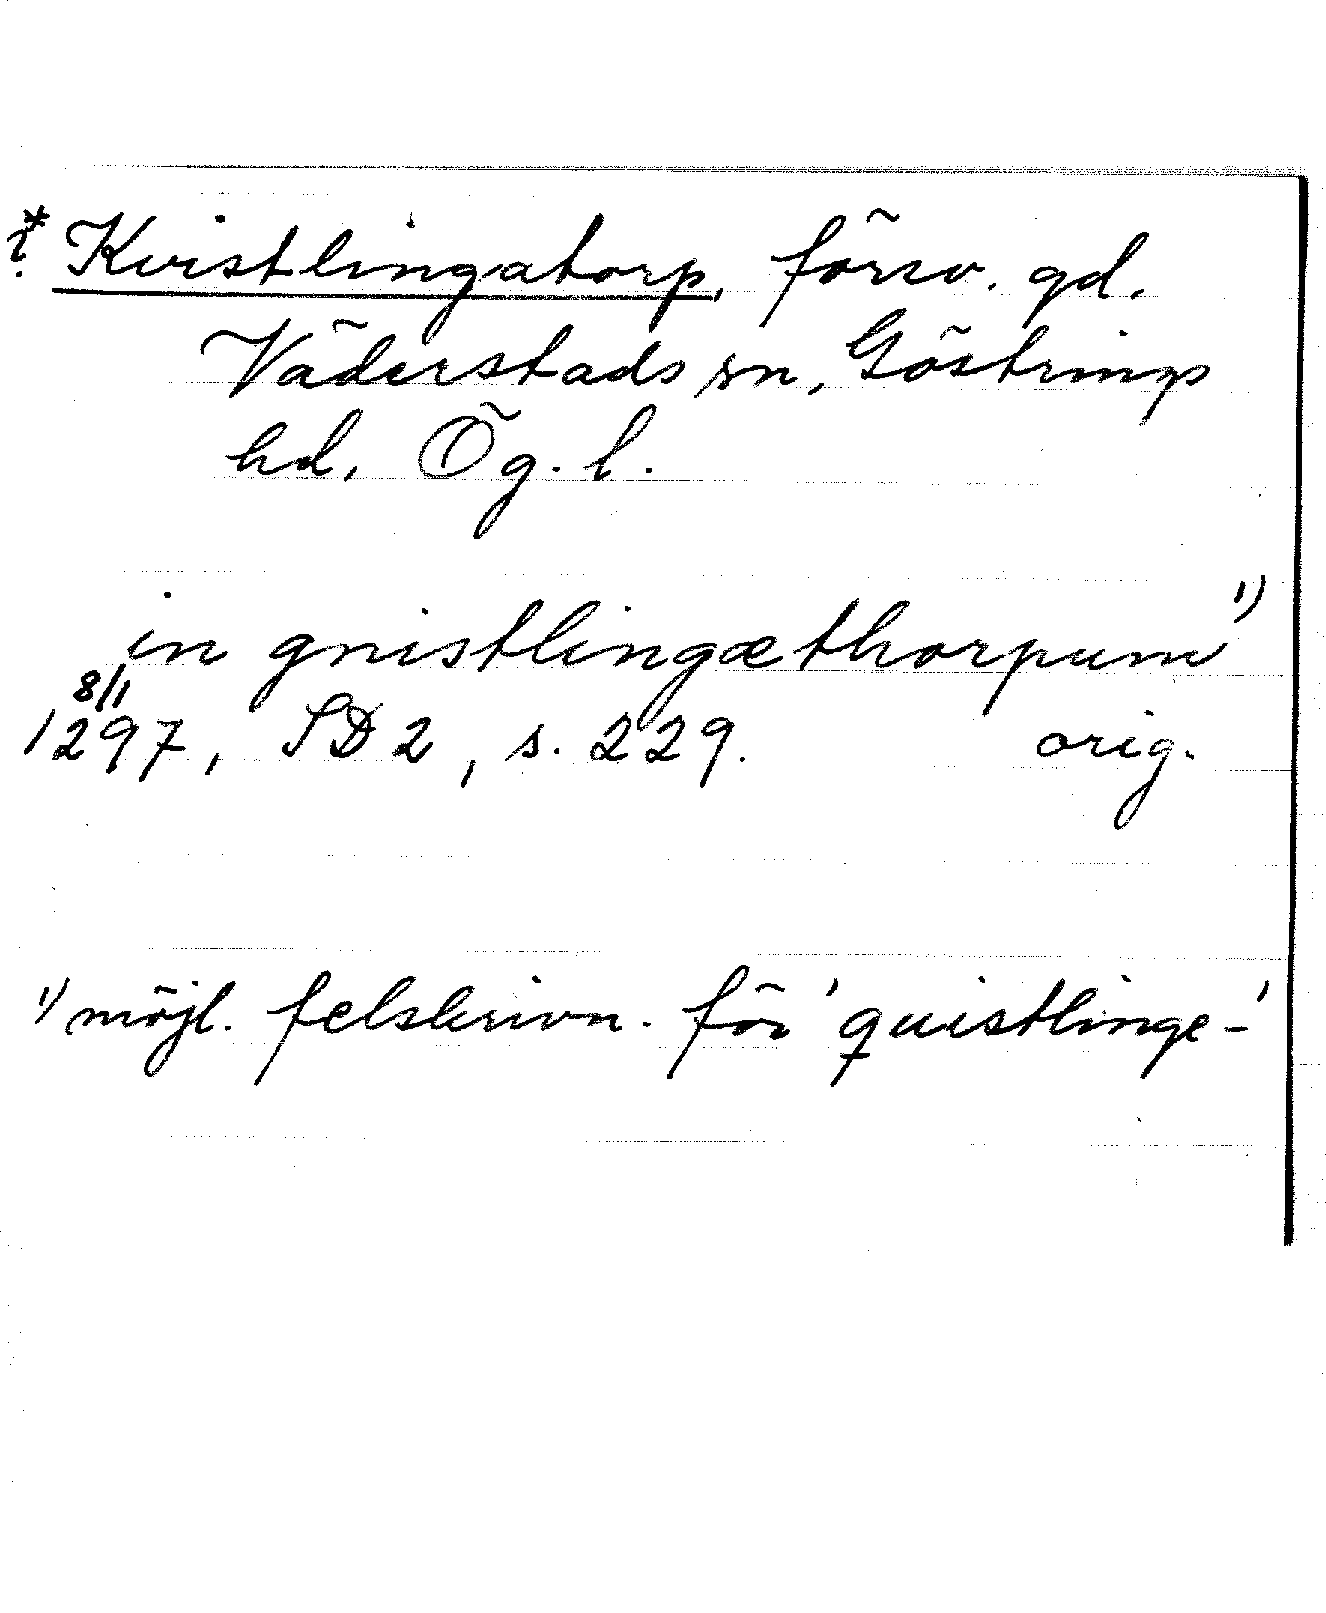 *? Kvistlingatorp, försv. gd.
Väderstads sn, Göstrings
hd. Ög. l.
in gnistlingæthorpum 1)
8/1
1297, SD 2, s. 229. orig.
1) möjl. felskrivn. för 'quistlinge-'